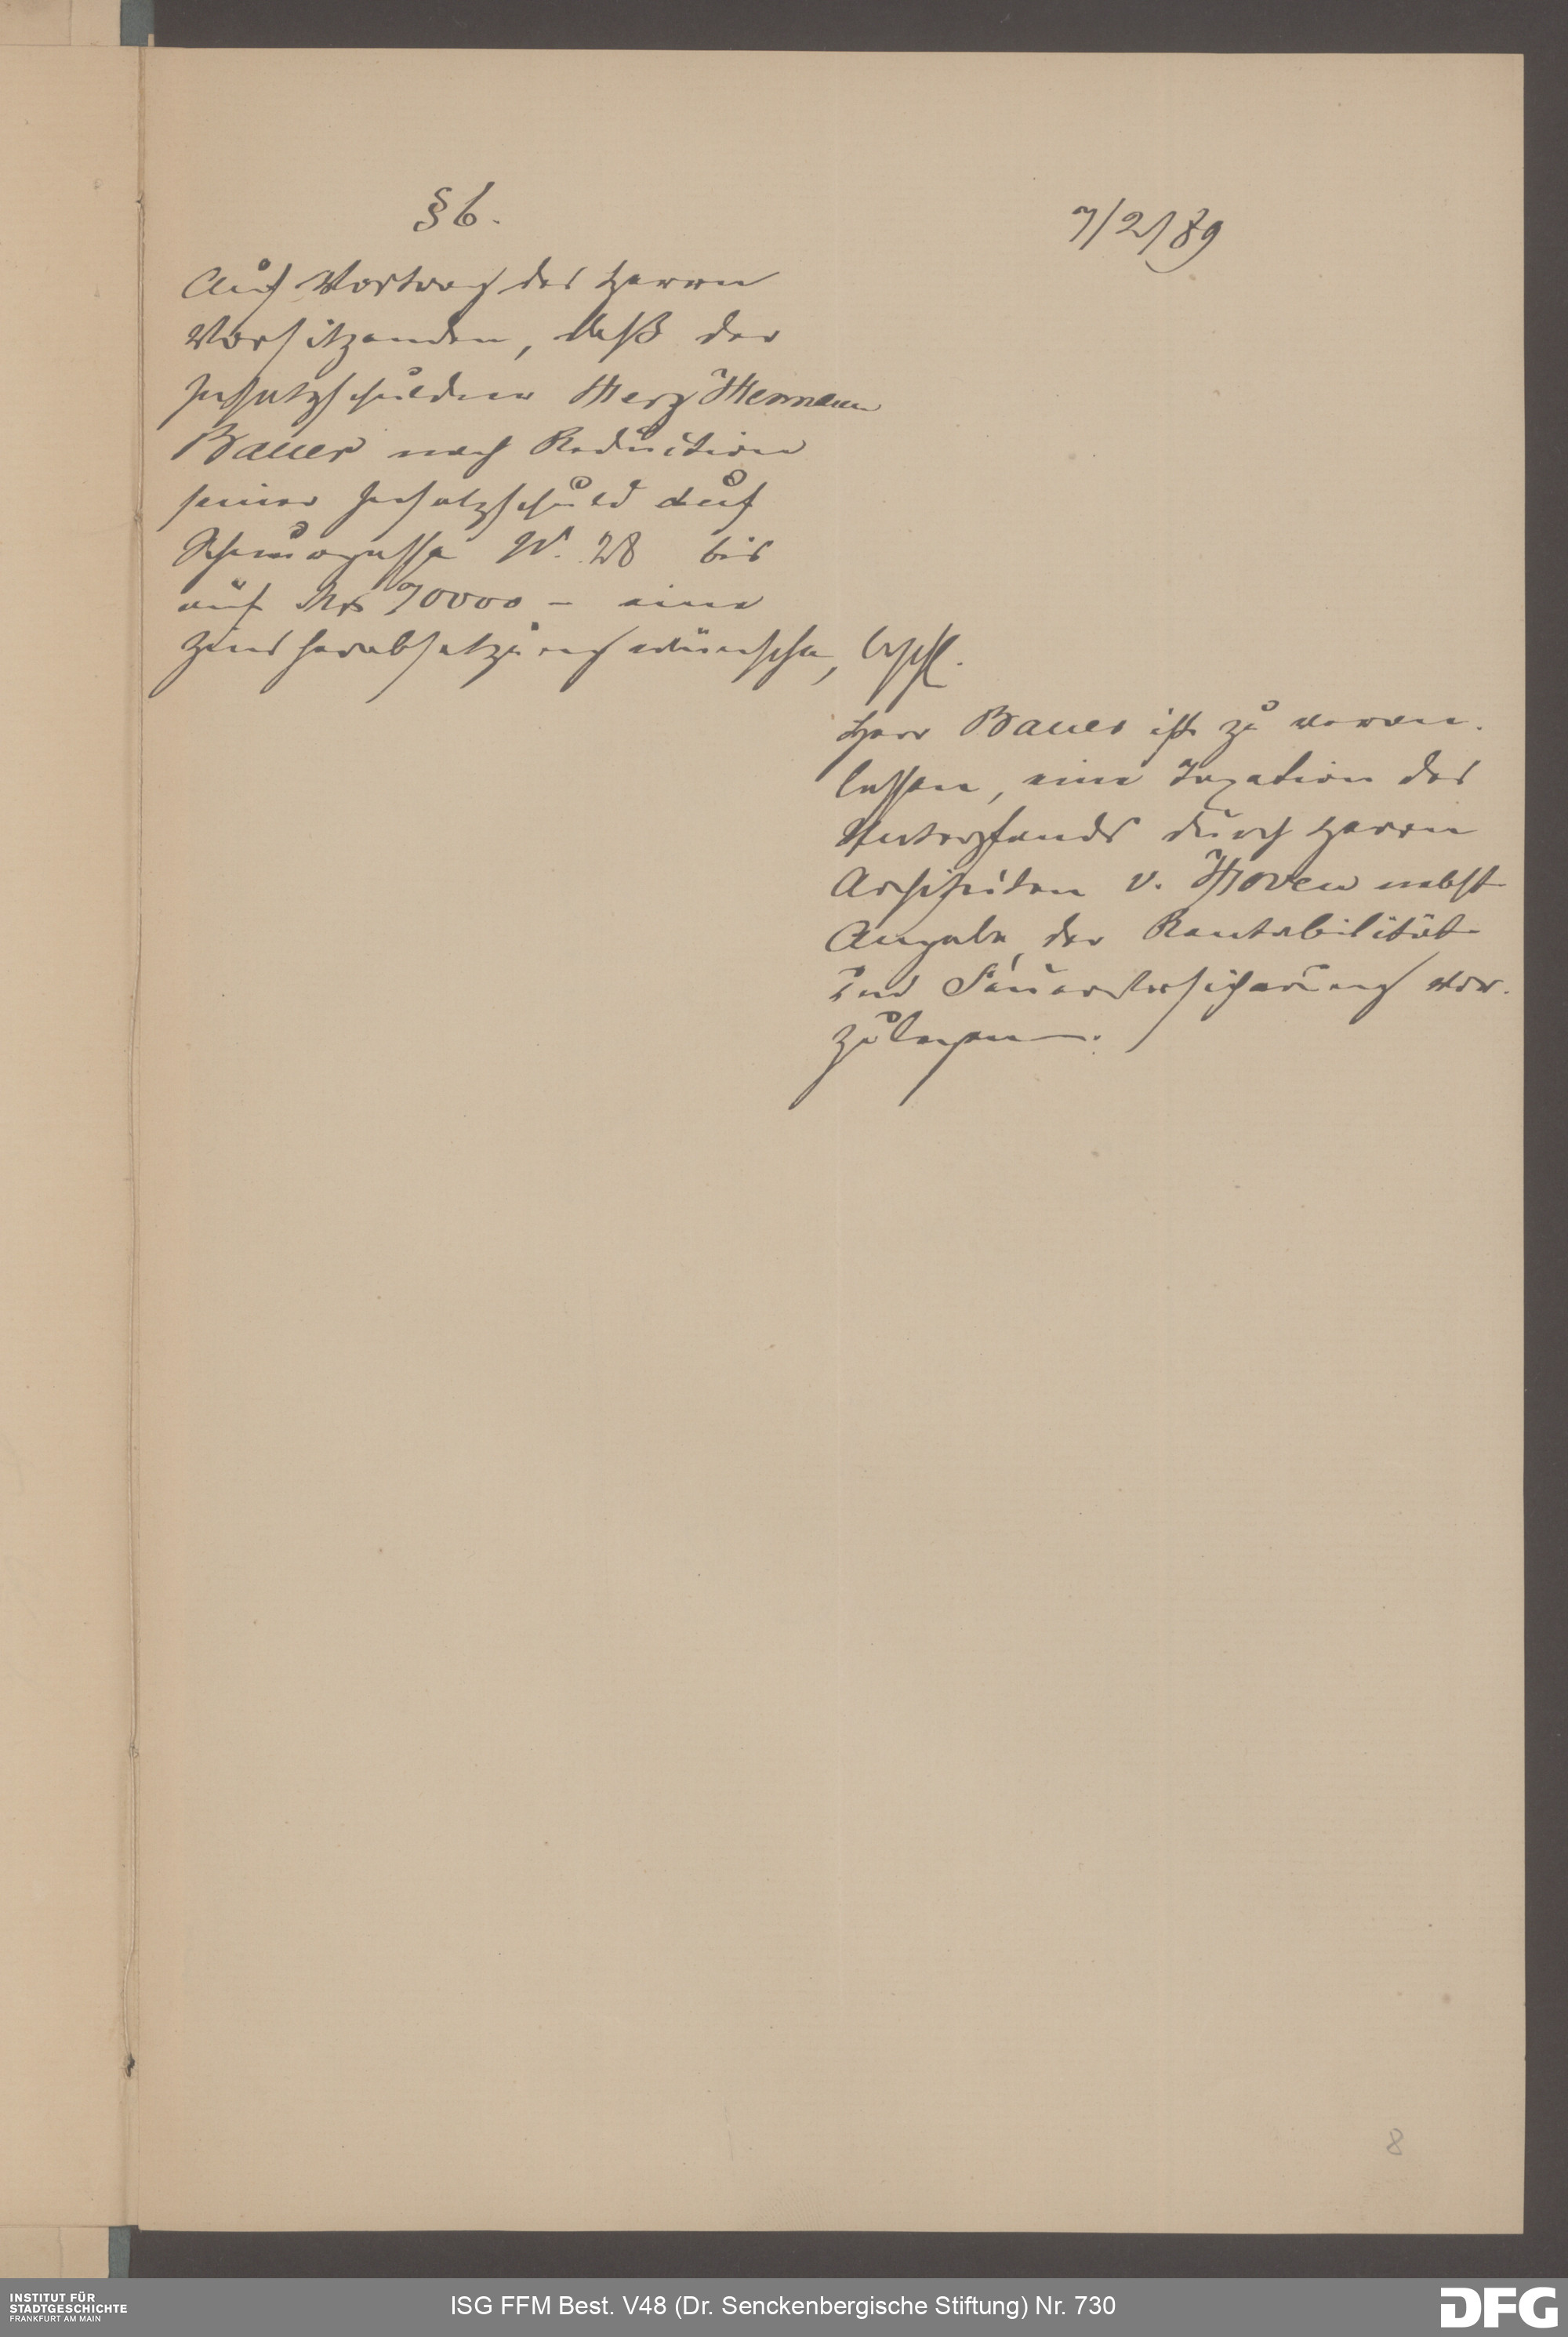 § 6.
7/2/89
Auf Vortrag des Herrn
Vorsitzenden, daß der
Insatzschuldner Herz Hermann
Bauer nach Reduction
seiner Insatzschuld auf
N. 28 bis
auf Mk 70000 – eine
Zinsherabsetzung wünsche, beschl.
Herr Bauer ist zu veran-
lassen, eine Taxation des
Unterpfands durch Herrn
Architekten v. Hoven nebst
Angabe der Rentabilität
und Feuerversicherung vor-
zulegen.
8
INSTITUT FÜR
STADTGESCHICHTE
FRANKFURT AM MAIN
ISG FFM Best. V48 (Dr. Senckenbergische Stiftung) Nr. 730
DFG